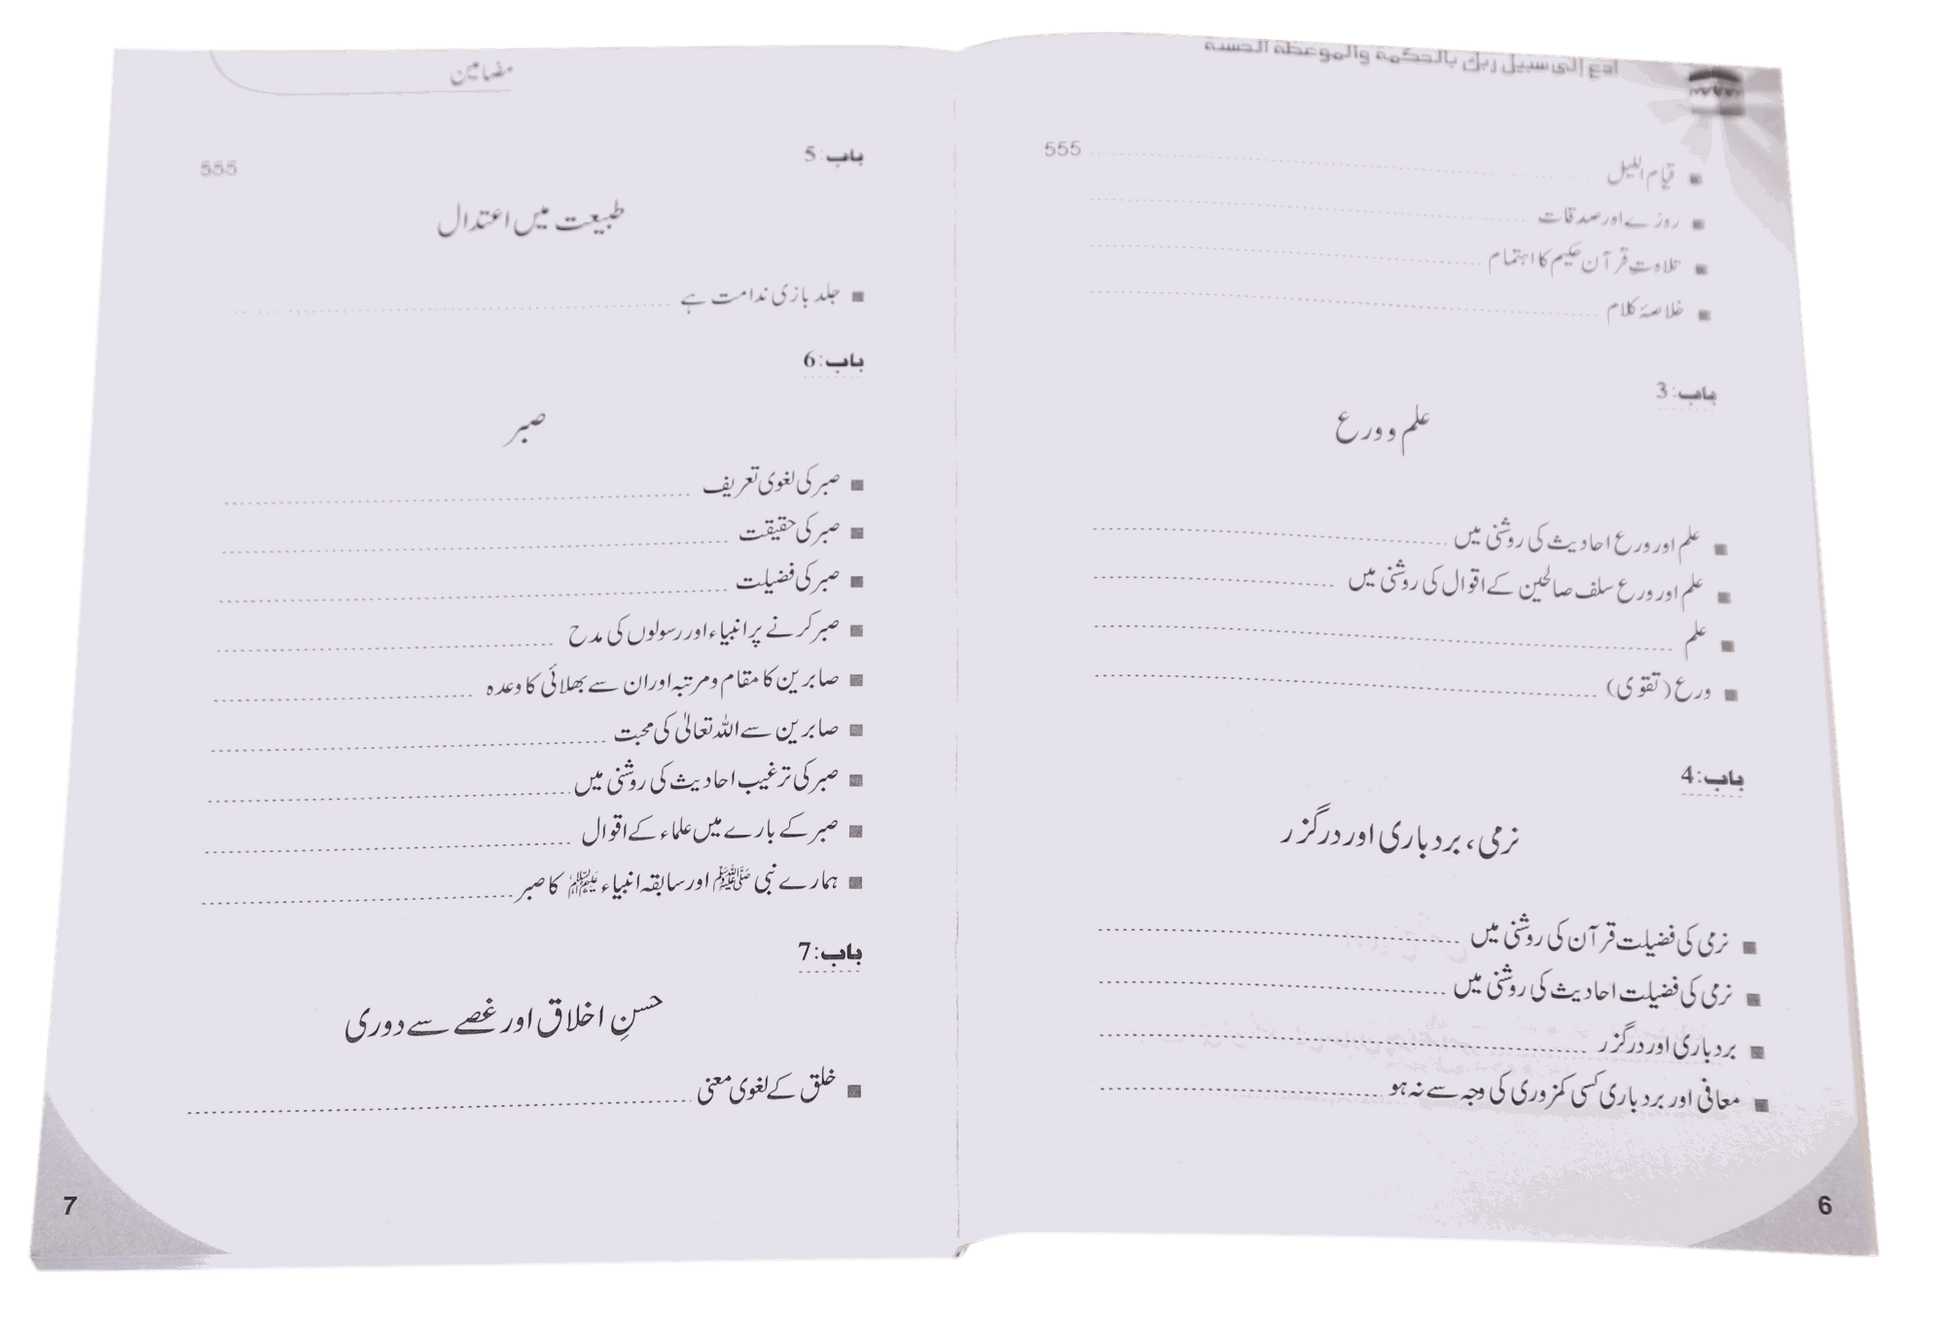 ادع إلى سبيل ربك بالحكمة والموعظة الحسنة
قیام اللیل 555
روزے اور صدقات
تلاوتِ قرآن حکیم کا اہتمام
خلاصۂ کلام
باب:3
علم و ورع
علم اور ورع احادیث کی روشنی میں
علم اور ورع سلف صالحین کے اقوال کی روشنی میں
علم
ورع (تقوی)
باب:4
نرمی، بردباری اور درگزر
نرمی کی فضیلت قرآن کی روشنی میں
نرمی کی فضیلت احادیث کی روشنی میں
بردباری اور درگزر
معافی اور بردباری کسی کمزوری کی وجہ سے نہ ہو
6
مضامین
باب:5
555
طبیعت میں اعتدال
جلد بازی ندامت ہے
باب:6
صبر
صبر کی لغوی تعریف
صبر کی حقیقت
صبر کی فضیلت
صبر کرنے پر انبیاء اور رسولوں کی مدح
صابرین کا مقام و مرتبہ اور ان سے بھلائی کا وعدہ
صابرین سے اللہ تعالیٰ کی محبت
صبر کی ترغیب احادیث کی روشنی میں
صبر کے بارے میں علماء کے اقوال
ہمارے نبی ﷺ اور سابقہ انبیاء علیہم السلام کا صبر
باب:7
حسنِ اخلاق اور غصے سے دوری
خلق کے لغوی معنی
7